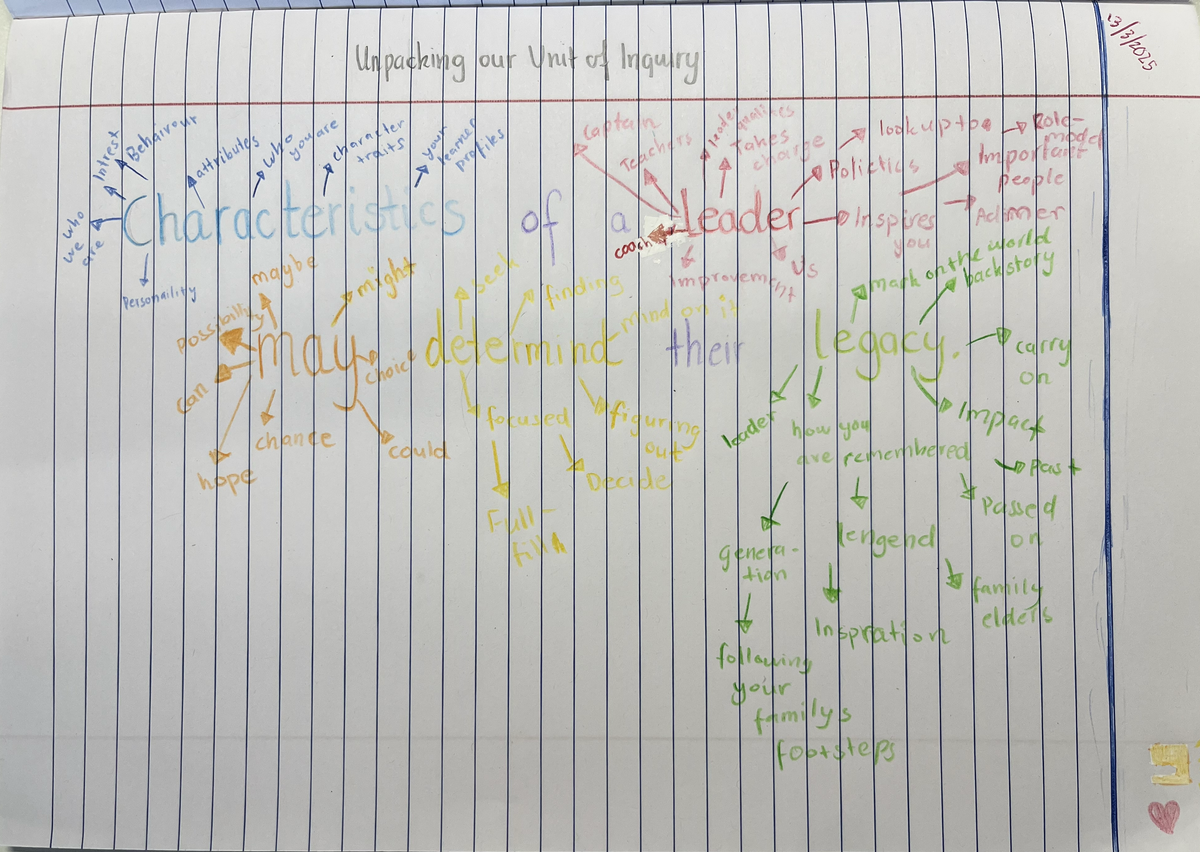 Unpacking our Unit of Inquiry
13/3/2025
Characteristics of a leader
who
we
are
Intrest
Behaivour
attributes
who
you are
character
traits
your
learner
profiles
Personaility
Captain
Teachers
leader
qualities
Takes
charge
Polictics
look up too
Role-
model
Important
people
Inspires
you
Admer
coach
improvement
Us
may determind their legacy.
maybe
might
possibility
can
choic
chance
hope
could
seek
finding
mind on it
focused
figuring
out
Decide
Full-
fill
mark on the world
backstory
carry
on
Impact
Past
leader
how you
are remembered
Passed
on
genera-
tion
lengend
family
elders
Inspration
following
your
familys
footsteps